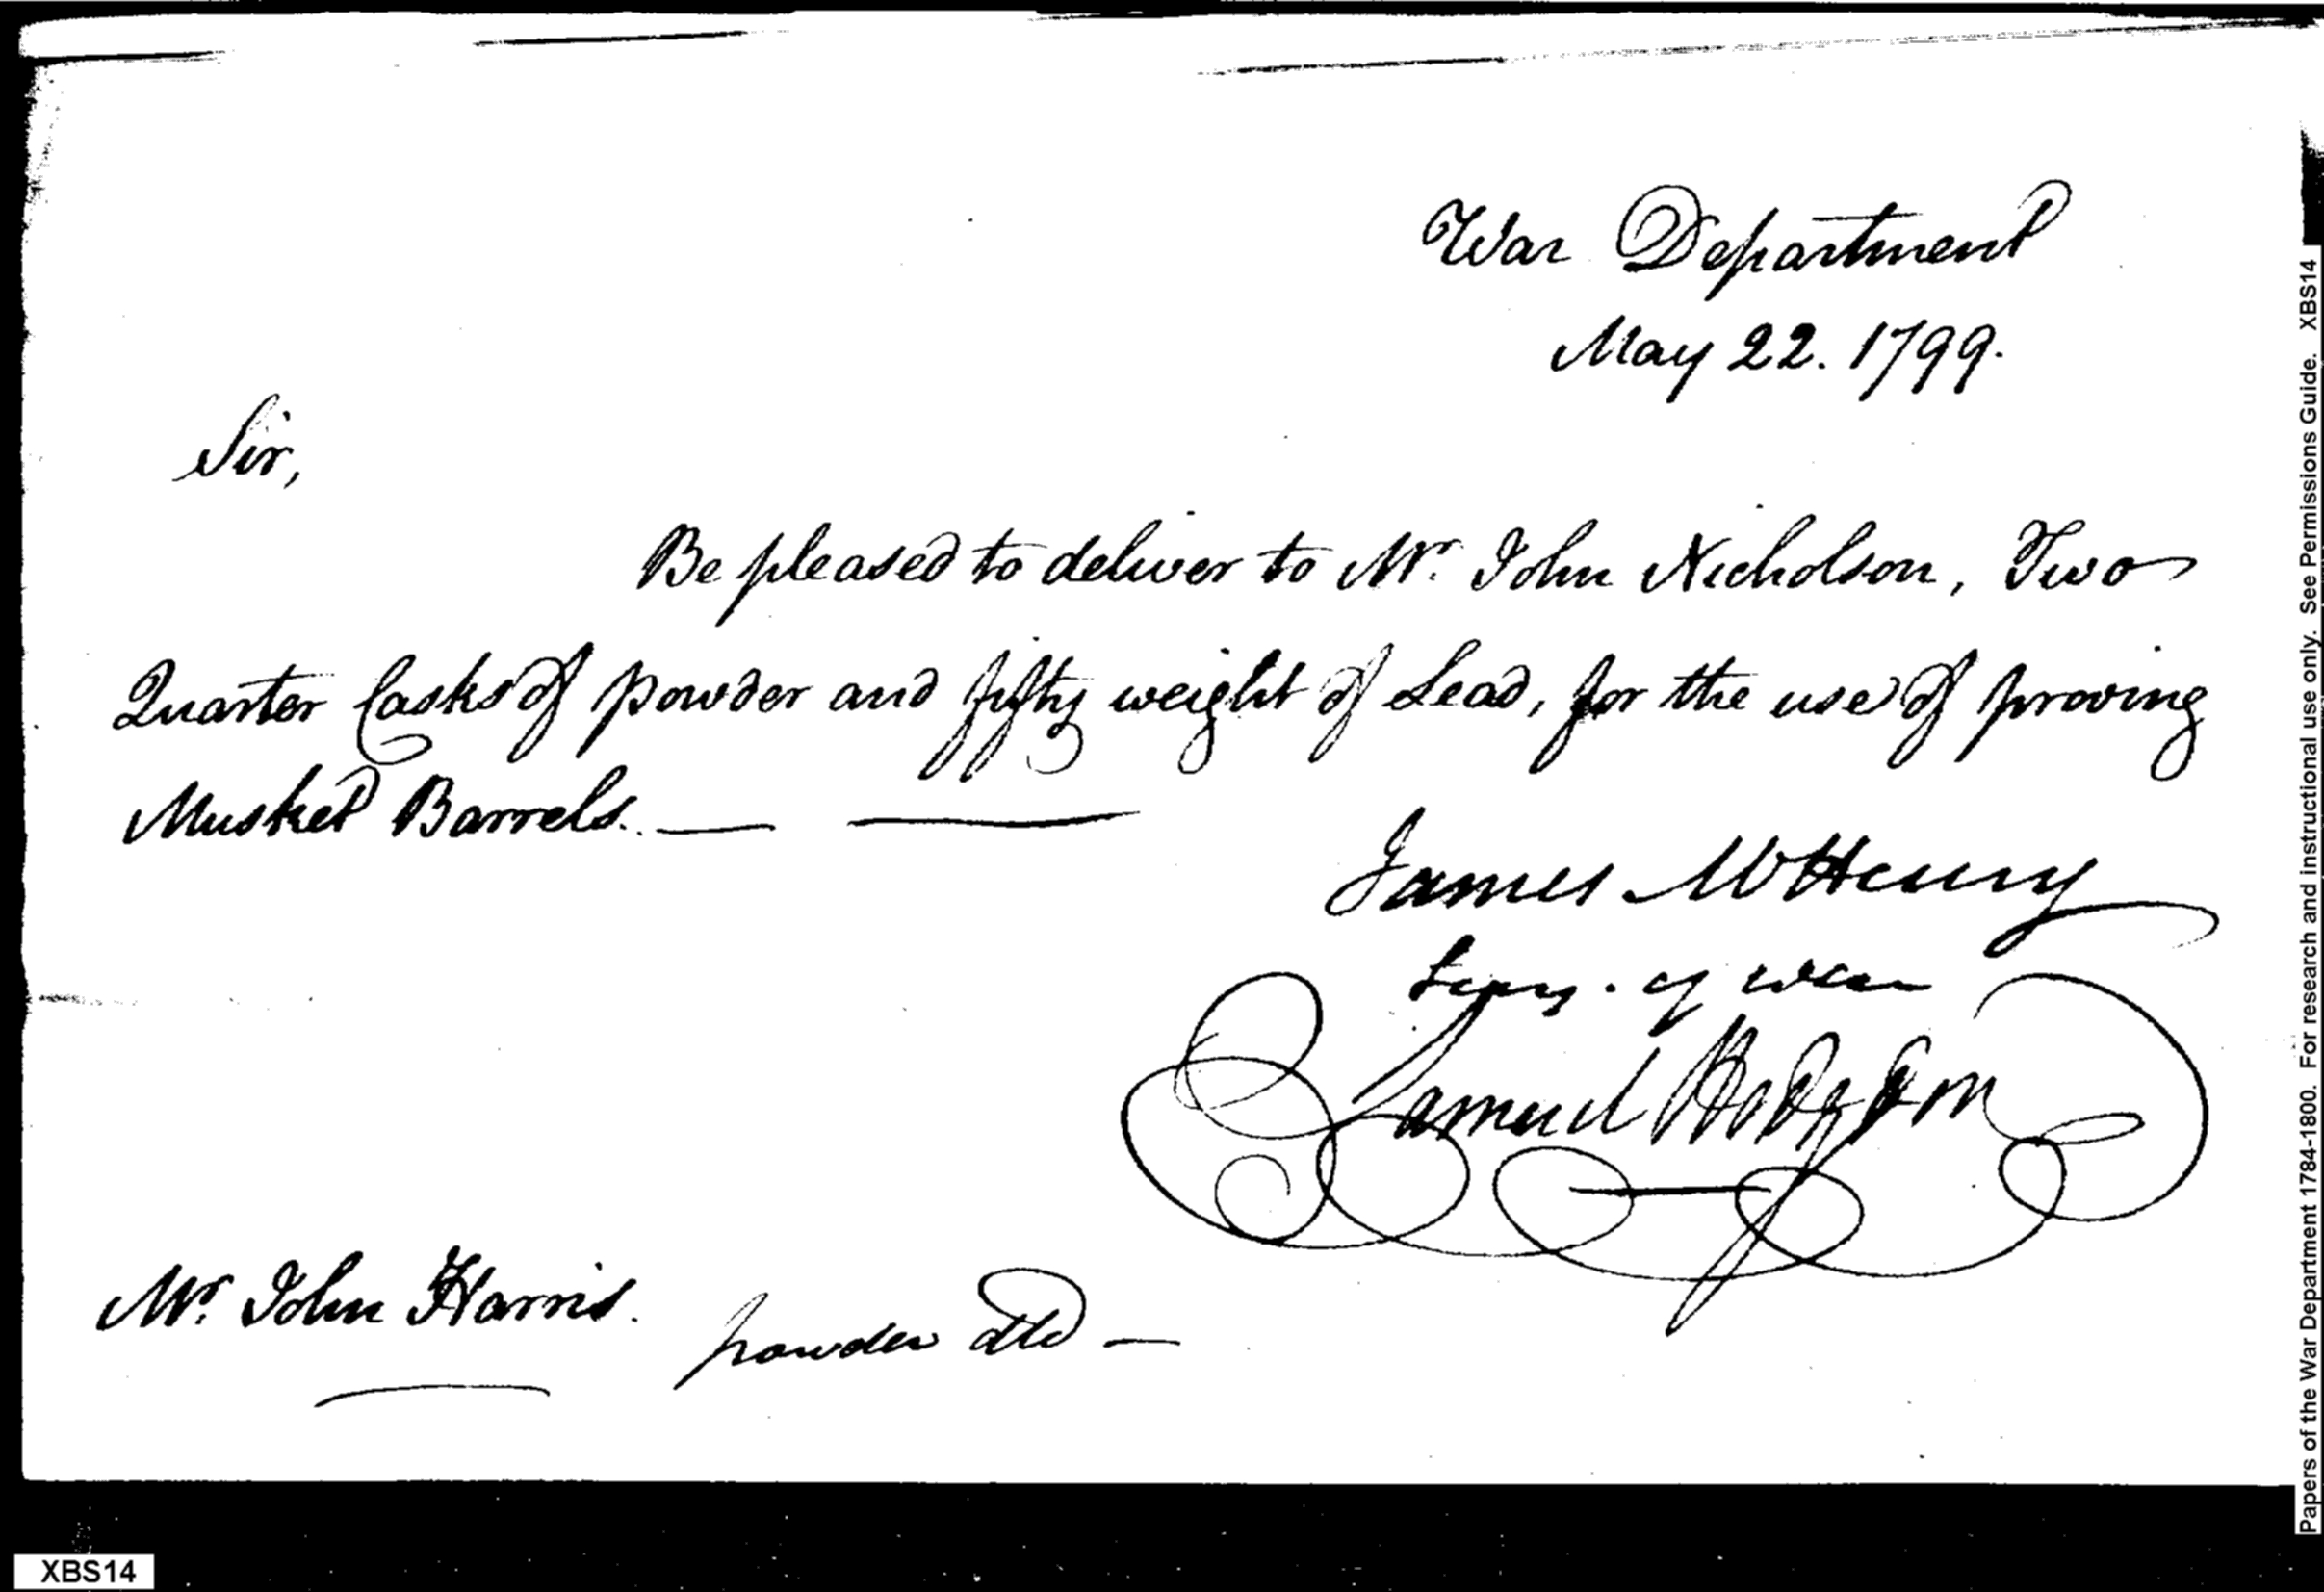 War Department
May 22. 1799.
Sir,
Be pleased to deliver to Mr. John Nicholson, Two
Quarter Casks of powder and fifty weight of Lead, for the use of proving
Musket Barrels.
James McHenry
Secy. of War
Samuel Hodgdon
Mr. John Harris.
powder
XBS14
Papers of the War Department 1784-1800. For research and instructional use only. See Permissions Guide. XBS14